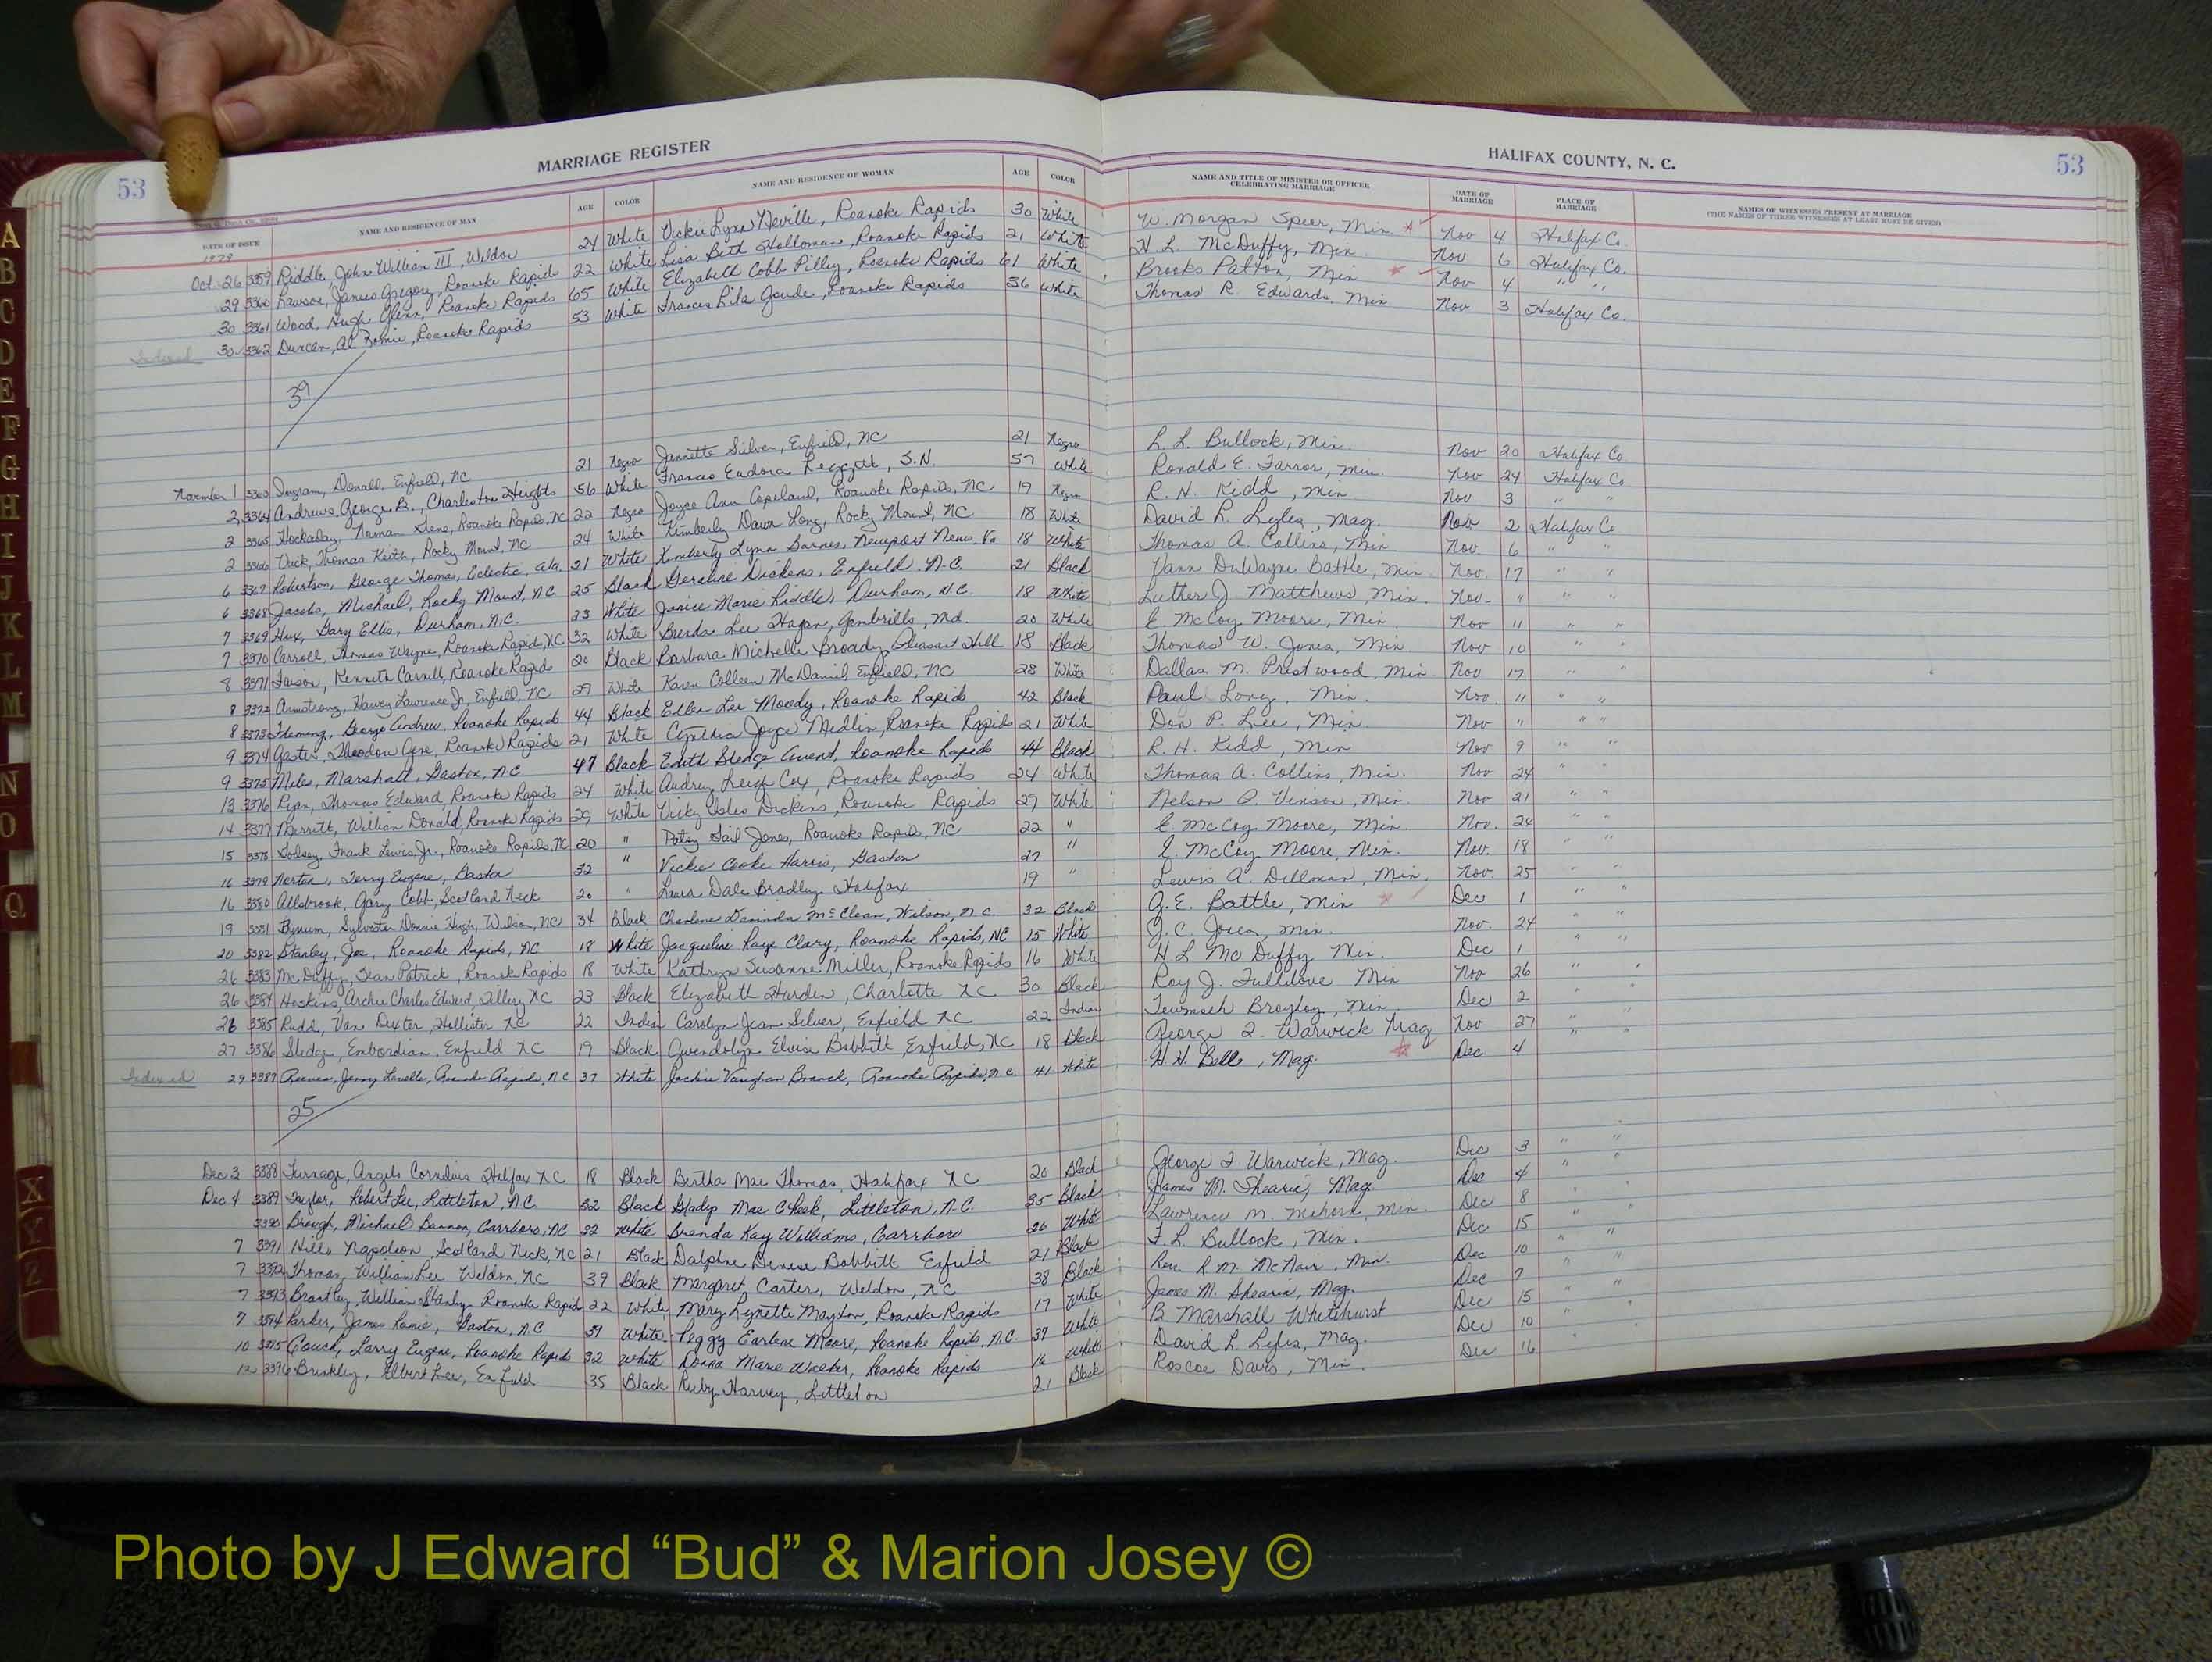 MARRIAGE REGISTER
HALIFAX COUNTY, N. C.
53
53
DATE OF ISSUE NAME AND RESIDENCE OF MAN AGE COLOR NAME AND RESIDENCE OF WOMAN AGE COLOR NAME AND TITLE OF MINISTER OR OFFICER CELEBRATING MARRIAGE DATE OF MARRIAGE PLACE OF MARRIAGE NAMES OF WITNESSES PRESENT AT MARRIAGE
(THE NAMES OF THREE WITNESSES AT LEAST MUST BE GIVEN)
1979
Oct 26 3359 Riddle, John William III, Weldon 24 White Vickie Lynn Neville, Roanoke Rapids 30 White W. Morgan Spear, Min. Nov 4 Halifax Co.
29 3360 Lawson, James Gregory, Roanoke Rapids 22 White Lisa Beth Holloman, Roanoke Rapids 21 White H. L. McDuffy, Min. Nov 6 Halifax Co.
30 3361 Wood, Hugh Glenn, Roanoke Rapids 65 White Elizabeth Cobb Pilley, Roanoke Rapids 61 White Brooks Patton, Min Nov 4 " "
Indexed 30 3362 Duncan, Al Romie, Roanoke Rapids 53 White Frances Lila Goude, Roanoke Rapids 36 White Thomas R. Edwards, Min Nov 3 Halifax Co.
39
November 1 3363 Ingram, Donald, Enfield, NC 21 Negro Jannette Silver, Enfield, NC 21 Negro L. L. Bullock, Min. Nov 20 Halifax Co
2 3364 Andrews, George B., Charleston Heights 56 White Frances Eudora Leggett, S.N. 57 White Ronald E. Farror, Min. Nov 24 Halifax Co
2 3365 Hockaday, Norman Gene, Roanoke Rapids, NC 22 Negro Joyce Ann Copeland, Roanoke Rapids, NC 19 Negro R. H. Kidd, Min Nov 3 " "
2 3366 Vick, Thomas Keith, Rocky Mount, NC 24 White Kimberly Dawn Long, Rocky Mount, NC 18 White David L. Lyles, Mag. Nov 2 Halifax Co
6 3367 Robertson, George Thomas, Eclectic, Ala. 21 White Kimberly Lynn Barnes, Newport News, Va 18 White Thomas A. Collins, Min Nov 6 " "
6 3368 Jacobs, Michael, Rocky Mount, NC 25 Black Geraline Dickens, Enfield, N.C. 21 Black Vann DuWayne Battle, Min. Nov. 17 " "
7 3369 Hux, Gary Ellis, Durham, N.C. 23 White Janice Marie Riddle, Durham, N.C. 18 White Luther J. Matthews, Min. Nov. " " "
7 3370 Carroll, Thomas Wayne, Roanoke Rapids, NC 32 White Brenda Lee Hagan, Gambrills, Md. 20 White E. McCoy Moore, Min. Nov 11 " "
8 3371 Faison, Kenneth Carnell, Roanoke Rapids 20 Black Barbara Michelle Broady, Pleasant Hill 18 Black Thomas W. Jones, Min Nov 10 " "
8 3372 Armstrong, Harvey Lawrence Jr., Enfield, NC 29 White Karen Colleen McDaniel, Enfield, NC 28 White Dallas M. Prestwood, Min Nov 17 " "
8 3373 Fleming, George Andrew, Roanoke Rapids 44 Black Ellen Lee Moody, Roanoke Rapids 42 Black Paul Long, Min. Nov 11 " "
9 3374 Gaster, Theodore Gene, Roanoke Rapids 21 White Cynthia Joyce Medlin, Roanoke Rapids 21 White Don P. Lee, Min. Nov " " "
9 3375 Miles, Marshall, Gaston, NC 47 Black Edith Sledge Avent, Roanoke Rapids 44 Black R. H. Kidd, Min Nov 9 " "
13 3376 Ryan, Thomas Edward, Roanoke Rapids 24 White Audrey Leigh Cox, Roanoke Rapids 24 White Thomas A. Collins, Min. Nov 24 " "
14 3377 Merritt, William Donald, Roanoke Rapids 29 White Vicky Isles Dickens, Roanoke Rapids 29 White Nelson O. Vinson, Min. Nov 21 " "
15 3378 Godsey, Frank Lewis, Jr., Roanoke Rapids, NC 20 " Patsy Gail Jones, Roanoke Rapids, NC 22 " E. McCoy Moore, Min. Nov. 24 " "
16 3379 Norton, Terry Eugene, Gaston 32 " Vickie Cooke Harris, Gaston 27 " E. McCoy Moore, Min. Nov. 18 " "
16 3380 Allsbrook, Gary Cobb, Scotland Neck 20 " Laura Dale Bradley, Halifax 19 " Lewis A. Dillman, Min. Nov. 25 " "
19 3381 Bynum, Sylvester Donnie Hugh, Wilson, NC 34 Black Charlene Davinda McClean, Wilson, N.C. 32 Black A. E. Battle, Min Dec 1 " "
20 3382 Stanley, Joe, Roanoke Rapids, NC 18 White Jacqueline Kaye Clary, Roanoke Rapids, NC 15 White J. C. Jones, Min. Nov. 24 " "
26 3383 McDuffy, Sean Patrick, Roanoke Rapids 18 White Kathryn Susanne Miller, Roanoke Rapids 16 White H L McDuffy Min. Dec 1 " "
26 3384 Hoskins, Archie Charles Edward, Tillery NC 23 Black Elizabeth Harden, Charlotte NC 30 Black Roy J. Fulilove Min Nov 26 " "
26 3385 Rudd, Van Dexter, Hollister NC 22 Indian Carolyn Jean Silver, Enfield NC 22 Indian Tecumseh Brayboy, Min Dec 2 " "
27 3386 Sledge, Embordian, Enfield NC 19 Black Gwendolyn Eloise Bobbitt, Enfield, NC 18 Black George T. Warwick Mag Nov 27 " "
Indexed 29 3387 Reeves, Jerry Lavelle, Roanoke Rapids, NC 37 White Jackie Vaughan Branch, Roanoke Rapids, N.C. 41 White H. H. Bell, Mag. Dec 4
25
Dec 3 3388 Turnage, Angelo Cornelius Halifax NC 18 Black Bertha Mae Thomas, Halifax NC 20 Black George T Warwick, Mag. Dec 3 " "
Dec 4 3389 Taylor, Robert Lee, Littleton, N.C. 32 Black Gladys Mae Cheek, Littleton, N.C. 35 Black James M. Shearin, Mag. Dec 4 " "
3390 Brough, Michael Bannon, Carrboro, NC 32 White Brenda Kay Williams, Carrboro 26 White Lawrence M. Min. Dec 8 " "
7 3391 Hill, Napoleon, Scotland Neck, NC 21 Black Dalphine Denese Bobbitt Enfield 21 Black F. L. Bullock, Min. Dec 15 " "
7 3392 Thomas, William Lee Weldon, NC 39 Black Margaret Carter, Weldon, NC 38 Black Rev. R. M. McNair, Min. Dec 10 " "
7 3393 Brantley, William Stanley Roanoke Rapids 22 White Mary Lynette Mayton, Roanoke Rapids 17 White James M. Shearin, Mag. Dec 7 " "
7 3394 Parker, James Ramie, Gaston, N.C 39 White Peggy Earlene Moore, Roanoke Rapids, N.C. 37 White B Marshall Whitehurst Dec 15 " "
10 3395 Couch, Larry Eugene, Roanoke Rapids 22 White Donna Marie Walker, Roanoke Rapids 16 White David L Lyles, Mag. Dec 10 "
12 3396 Brinkley, Elbert Lee, Enfield 35 Black Ruby Harvey, Littleton 21 Black Roscoe Davis, Min. Dec 16
A
B
C
D
E
F
G
H
I
J
K
L
M
N
O
Q
X
Y
Z
Photo by J Edward “Bud” & Marion Josey ©